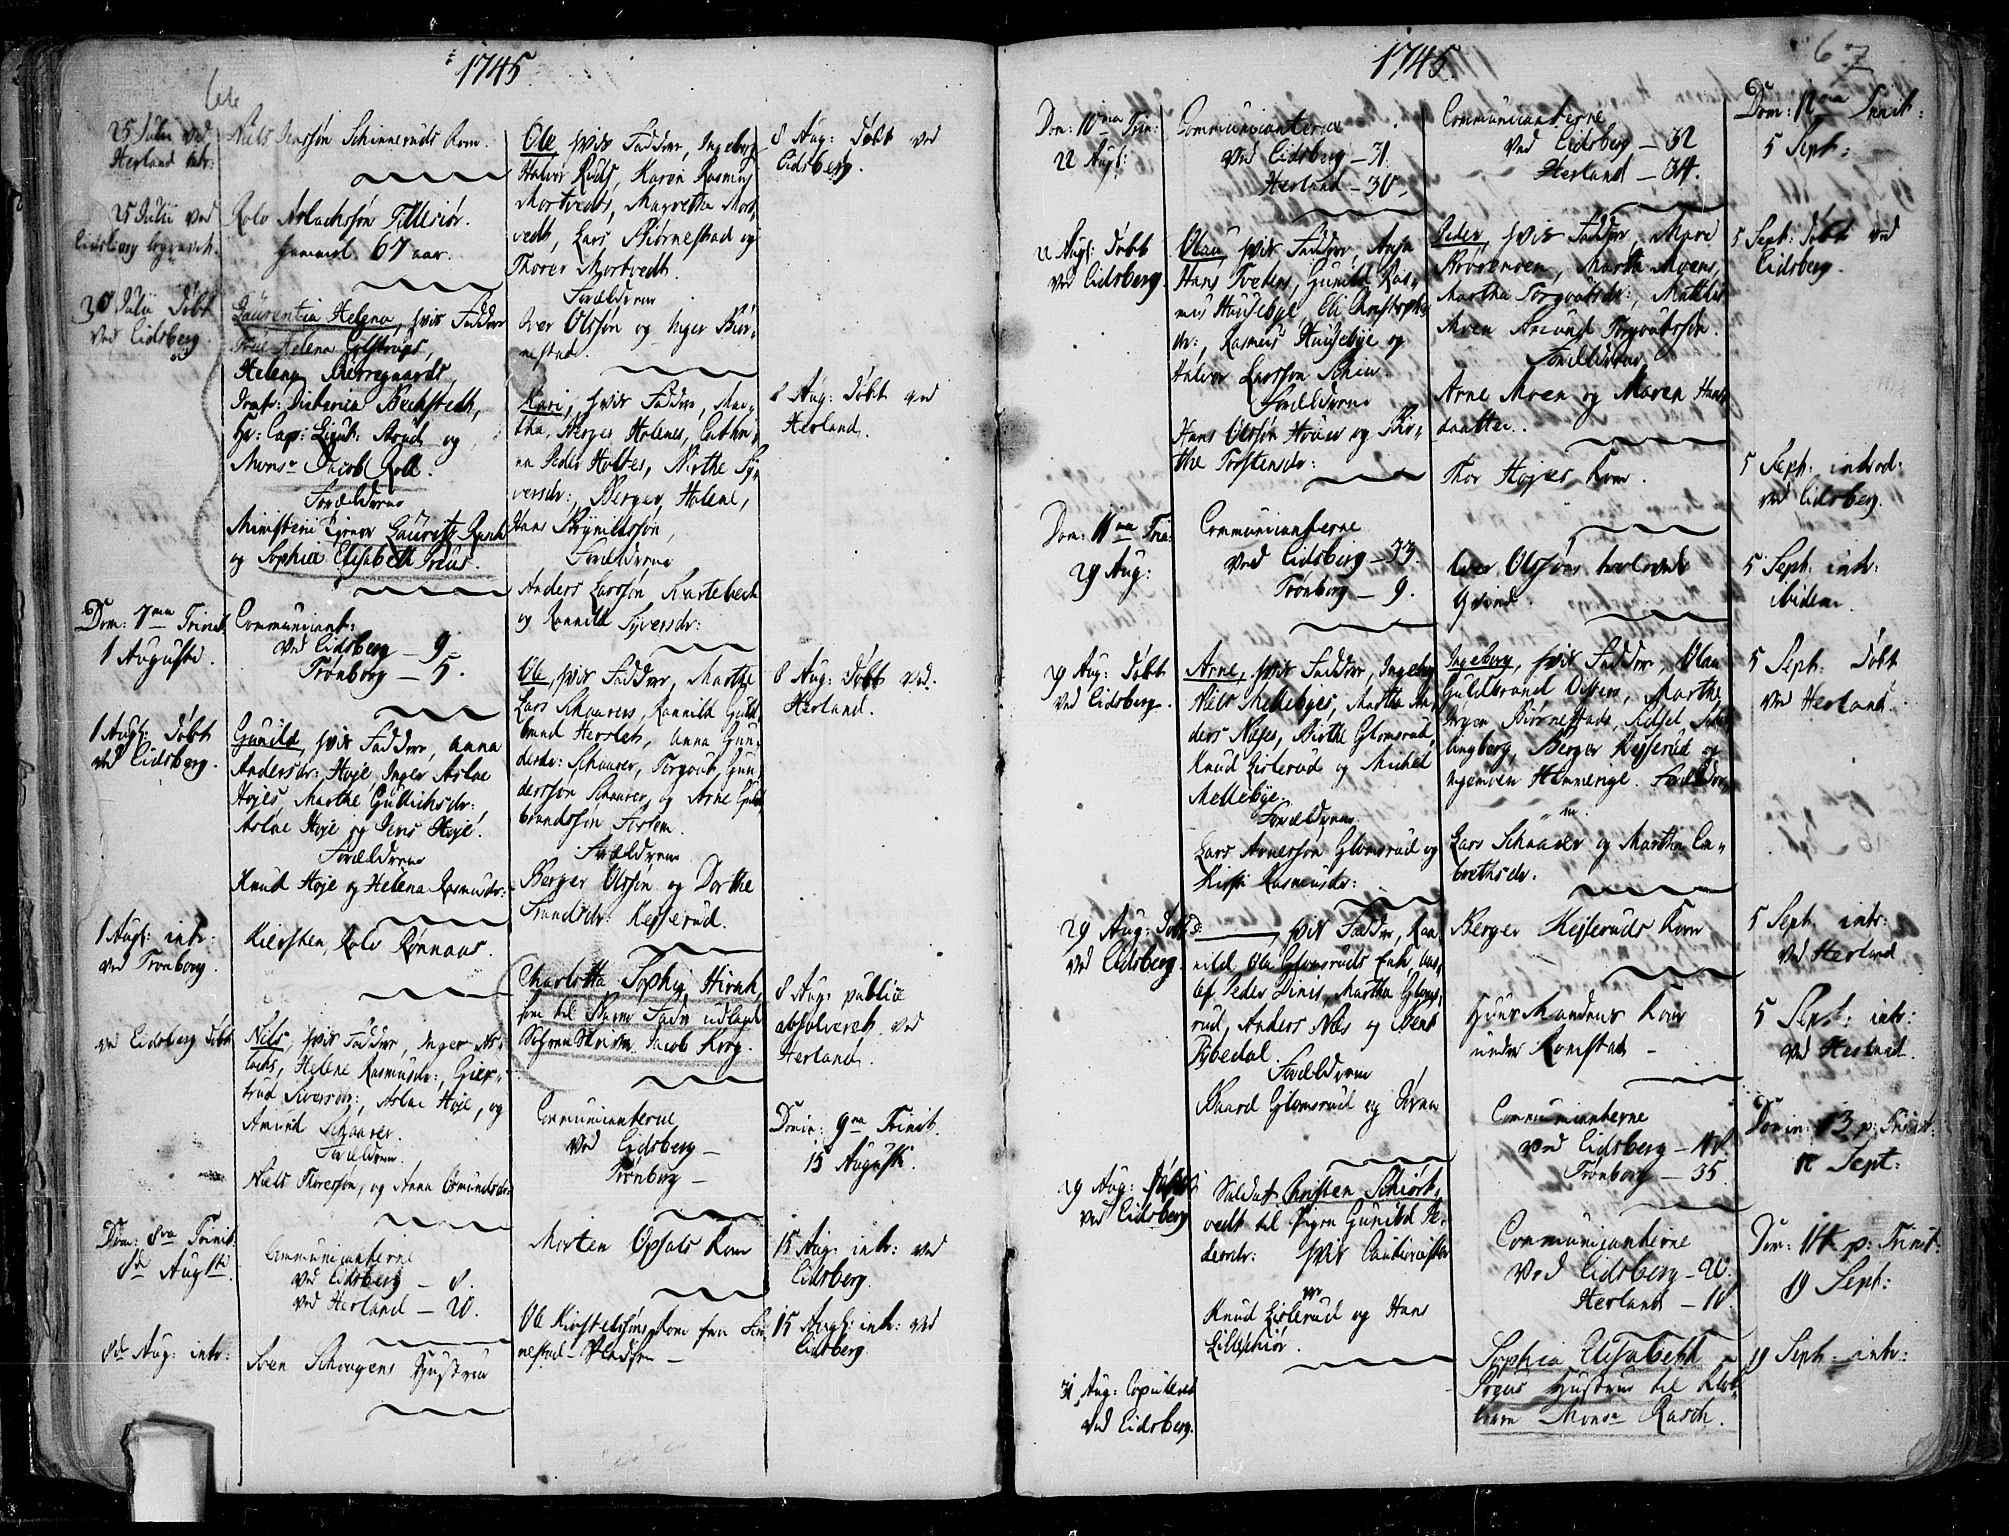 1745
25 Julii ved
Herland intr:
Niels Jenssøn Schinneruds Kone.
25 Julii ved
Eidsberg begravet.
Rolv Aslachssøn Tillersiør.
gammel 67 aar.
30 Julii Døbt
ved Eidsberg
Laurentia Helena, hvis Faddere
Frue Helena
Helena Bierregaards,
Jomfr: Dieterica Bechstedt,
Hr: Cap: Lieut: Arnd og
Monsr Jacob Roll.
Forældrene
Ministerii Tjener Lauritz Rasch
og Sophia Elisabeth Preus.
Dom: 7ma Trinit
1 Augusti.
Communicant:
Ved Eidsberg – 9.
Trønborg – 5.
1 Aug: Døbt
ved Eidsberg.
Gunild, hvis Faddere, Anna
Andersdr: Hoje, Inger Aslac
Hojes, Marthe Gullichsdr:
Aslac Hoje og Jens Hoje.
Forældrene
Knud Hoje og Helena Rasmusdr:
1 Aug: intr:
ved Trønborg.
Kiersten, Rolv Rønnaas.
ved Eidsberg Døbt
Nils, hvis Faddere, Inger As-
lachs, Helene Rasmusdr:, Gier-
trud Siversdr:, Aslac Hoje, og
Amund Schaarer.
Forældrene
Niels Thoressøn, og Anna Omundsdr:
Dom: 8va Trinit
8de Augusti.
Communicanterne
ved Eidsberg – 8.
ved Herland – 20.
8de Aug: intr:
Sven Schougens Hustrue
Ole, hvis Faddere, Ingeborg
Halvor Ruds, Karen Rasmus
Mortvedts, Magretha Mort-
vedt, Lars Biørnestad og
Thorer Mortvedt.
Forældrene
Iver Olssøn og Inger Biør-
nestad.
8 Aug: Døbt ved
Eidsberg.
Kari, hvis Faddere, Mar-
tha, Berger Holenes, Cathri-
na Peder Holtes, Birthe Sy-
versdr:, Berger Holene,
Hans Brynildssøn,
Forældrene
Anders Larssøn Kartebech
og Rannild Syversdr:
8 Aug: Døbt ved
Herland.
Ole, hvis Faddere, Marthe
Lars Schaarers, Rannild Guld-
brand Herslet, Anna Gun-
dersdr: Schaarer, Torgout Gun-
derssøn Schaarer, og Arne Guld-
brandssøn Forlem.
Forældrene
Berger Olssøn og Dorthe
Trundsdr: Kesserud.
8 Aug: Døbt ved
Herland.
Charlotta Sophia Hirsch,
som til Barne Fader udlagde
Jacob Krog.
8 Aug: publice
absolveret ved
Herland.
Communicanterne
Ved Eidsberg –
Trønborg –
Domin: 9na Trinit.
15 Augusti.
Morten Opsals Kone
15 Aug: intr: ved
Eidsberg.
Ole Kirstelssøns Kone fra Fin-
nestad-Pladsen –
15 Aug: intr: ved
Eidsberg
1745
67
Dom: 10ma Trin:
22 Aug:
Communicanterne
ved Eidsberg – 31.
Herland – 30.
22 Aug: Døbt
ved Eidsberg.
Olau, hvis Faddere, Anna
Hans Tvetens, Gunild Ras-
mus Haugebyes, Eli Christophers
dr:, Rasmus Haugebye og
Halvor Larssøn Schin.
Forældrene
Hans Olssøn Houer og Bir-
the Torstensdr:
Dom: 11ma Trin:
29 Aug:
Communicanterne
ved Eidsberg – 33.
Trønborg – 9.
29 Aug: Døbt
ved Eidsberg.
Arne, hvis Faddere, Ingeborg
Niels Mellebyes, Martha An-
ders Næses, Birthe Glomsrud,
Knud Lislerud og Michel
Mellebye.
Forældrene
Lars Arnessøn Glomsrud og
Kirsti Rasmusdr:
29 Aug: Døbt
ved Eidsberg.
hvis Faddere, Ran-
nild Ole Glomsruds Enke,
Peder Dines, Martha Gloms-
rud, Anders Næs og Bent
Bøedal.
Forældrene
Baard Glomsrud og Siren
29 Aug:
ved Eidsberg
Soldat Christen Schiørt-
vedt til Pigen Gunild Pe-
dersdr: hvis Cautionister
Knud Lislerud og Hans
Lillehiør.
31 Aug: Copuleret
ved Eidsberg.
Communicanterne
Ved Eidsberg – 32
Herland – 34.
Dom: 12ma Trinit:
5 Sept:
Peder, hvis Faddere, Mari
Brørensen, Marthe Moens,
Martha Torgoutsdr:, Mathis
Moen, Amund Torgoutssøn.
Forældrene
Arne Moen og Maren Hans-
daatter.
5 Sept: Døbt ved
Eidsberg.
Thor Hojes Kone.
5 Sept: introd:
ved Eidsberg.
Iver Olssøns
Qvinde.
5 Sept: intr:
ibidem.
Ingeborg, hvis Faddere, Olau
Guldbrand Distens, Marthe
Jørgen Biørnestads, Sidsel Sch-
lingberg, Berger Kesserud og
Hemmenge. Forældre-
ne.
Lars Schaarer og Martha En-
brethsdr.
5 Sept: Døbt
ved Herland
Berger Kesseruds Kone
5 Sept: intr:
ved Herland
Huus Mandens Kone
under Romstad –
5 Sept: intr:
ved Herland.
Communicanterne
ved Eidsberg –
Trønborg – 35.
Domin: 13 p: Trinit:
12 Sept:
Communicanterne
Ved Eidsberg – 20.
Herland – 10.
Dom: 14 p: Trinit:
19 Sept:
Sophia Elisabeth
Preus Hustrue til Klok-
keren Monsr Rasch.
19 Sept: intr: